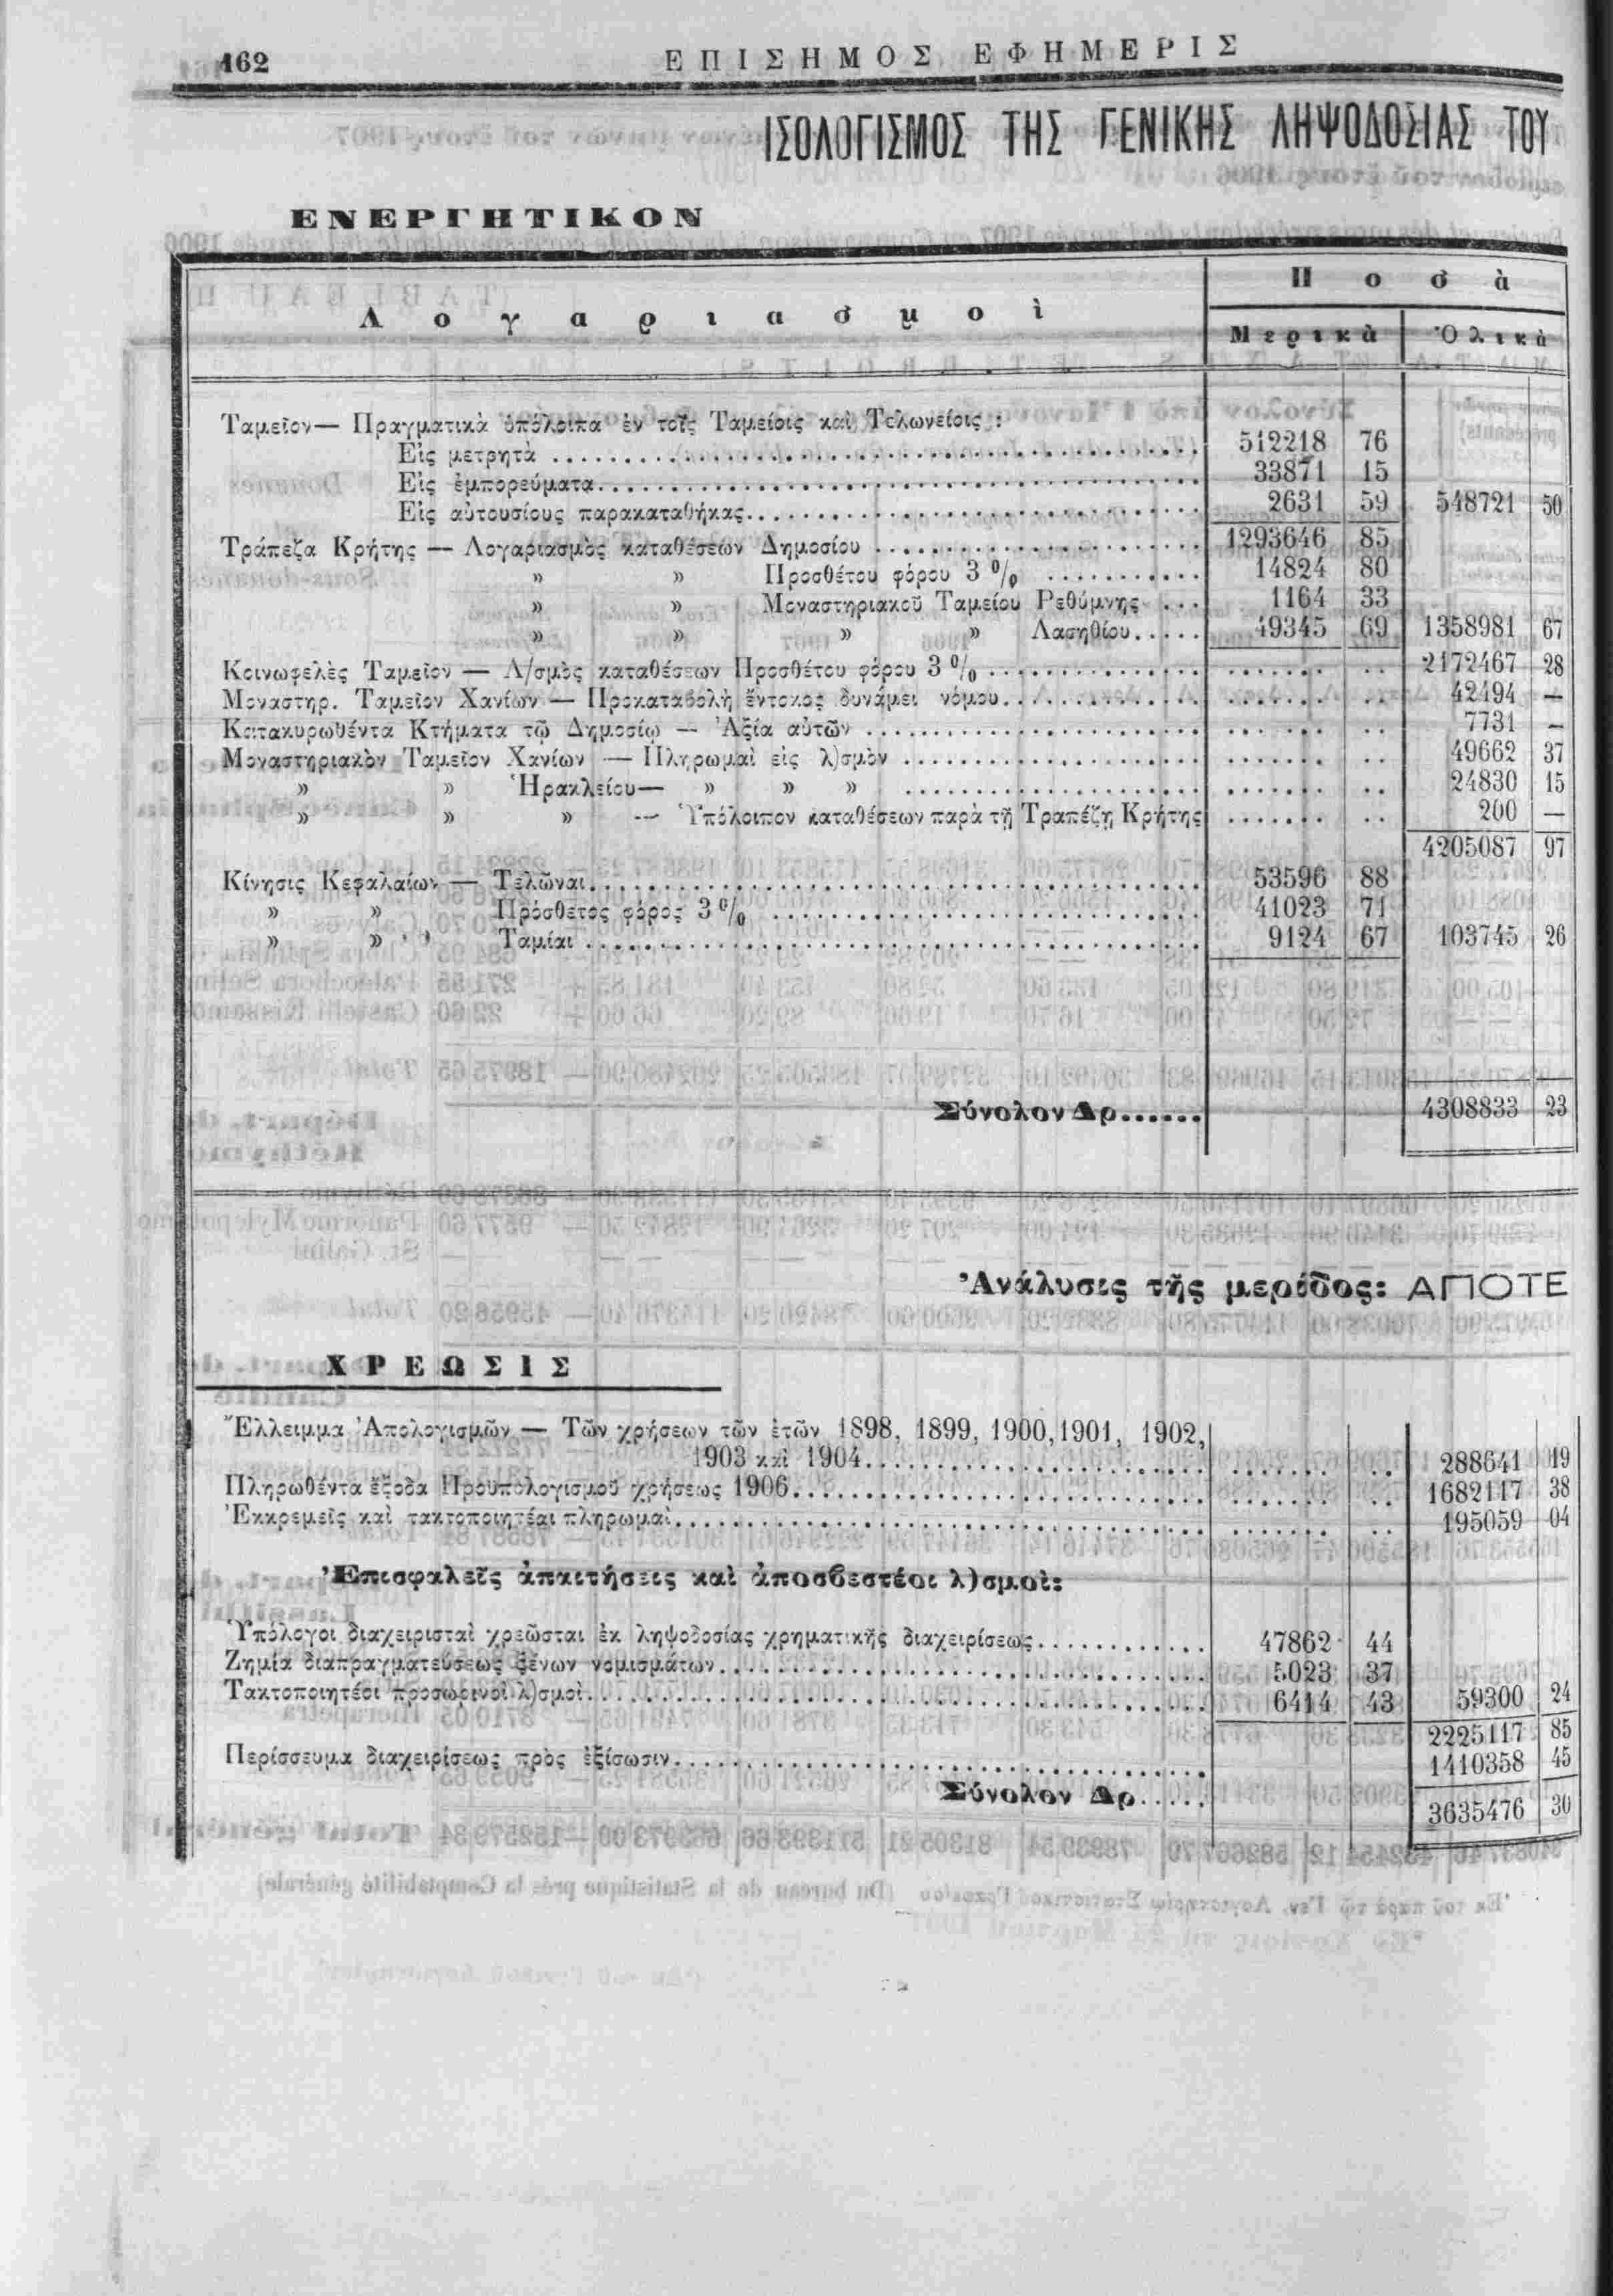 162 ΕΠΙΣΗΜΟΣ ΕΦΗΜΕΡΙΣ
ΙΣΟΛΟΓΙΣΜΟΣ ΤΗΣ ΓΕΝΙΚΗΣ ΛΗΨΟΔΟΣΙΑΣ ΤΟΥ
ΕΝΕΡΓΗΤΙΚΟΝ
Λογαριασμοὶ Ποσὰ
Μερικὰ Ὁλικὰ
Ταμεῖον— Πραγματικὰ ὑπόλοιπα ἐν τοῖς Ταμείοις καὶ Τελωνείοις :
Εἰς μετρητὰ 512218 76
Εἰς ἐμπορεύματα 33871 15
Εἰς αὐτουσίους παρακαταθήκας 2631 59 548721 50
Τράπεζα Κρήτης — Λογαριασμὸς καταθέσεων Δημοσίου 1293646 85
» » Προσθέτου φόρου 3 % 14824 80
» » Μοναστηριακοῦ Ταμείου Ρεθύμνης 1164 33
» » » » Λασηθίου 49345 69 1358981 67
Κοινωφελὲς Ταμεῖον — Λ/σμὸς καταθέσεων Προσθέτου φόρου 3 % 2172467 28
Μοναστηρ. Ταμεῖον Χανίων — Προκαταβολὴ ἔντοκος δυνάμει νόμου 42494 —
Κατακυρωθέντα Κτήματα τῷ Δημοσίῳ — Ἀξία αὐτῶν 7731 —
Μοναστηριακὸν Ταμεῖον Χανίων — Πληρωμαὶ εἰς λ)σμὸν 49662 37
» » Ἡρακλείου— » » » 24830 15
» » » — Ὑπόλοιπον καταθέσεων παρὰ τῇ Τραπέζῃ Κρήτης 200 —
4205087 97
Κίνησις Κεφαλαίων — Τελῶναι 53596 88
» » Πρόσθετος φόρος 3 % 41023 71
» » Ταμίαι 9124 67 103745 26
Σύνολον Δρ...... 4308833 23
Ἀνάλυσις τῆς μερίδος: ΑΠΟΤΕ
ΧΡΕΩΣΙΣ
Ἔλλειμμα Ἀπολογισμῶν — Τῶν χρήσεων τῶν ἐτῶν 1898, 1899, 1900, 1901, 1902,
1903 καὶ 1904 288641 19
Πληρωθέντα ἔξοδα Προϋπολογισμοῦ χρήσεως 1906 1682117 38
Ἐκκρεμεῖς καὶ τακτοποιητέαι πληρωμαὶ 195059 04
Ἐπισφαλεῖς ἀπαιτήσεις καὶ ἀποσβεστέοι λ)σμοὶ:
Ὑπόλογοι διαχειρισταὶ χρεῶσται ἐκ ληψοδοσίας χρηματικῆς διαχειρίσεως 47862 44
Ζημία διαπραγματεύσεως ξένων νομισμάτων 5023 37
Τακτοποιητέοι προσωρινοὶ λ)σμοὶ 6414 43 59300 24
2225117 85
Περίσσευμα διαχειρίσεως πρὸς ἐξίσωσιν 1410358 45
Σύνολον Δρ..... 3635476 30